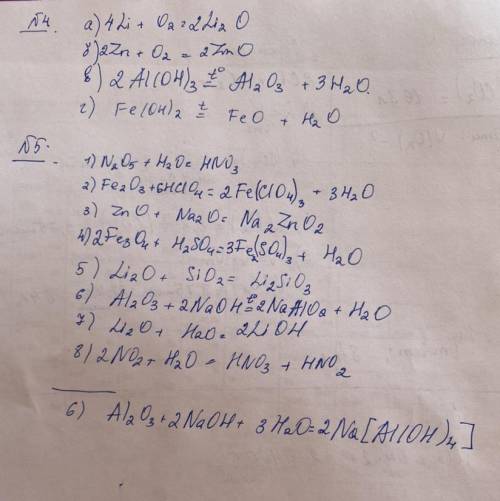 №4. а) 4Li + O₂ = 2Li₂O
б) 2Zn + O₂ = 2ZnO
в) 2Al(OH)₃ t°= Al₂O₃ + 3H₂O.
г) Fe(OH)₂ t= FeO + H₂O
№5.
1) N₂O₅ + H₂O = HNO₃
2) Fe₂O₃ + 6HClO₄ = 2Fe(ClO₄)₃ + 3H₂O
3) ZnO + Na₂O = Na₂ZnO₂
4) 2Fe₃O₄ + H₂SO₄ = 3Fe₂(SO₄)₃ + H₂O
5) Li₂O + SiO₂ = Li₂SiO₃
6) Al₂O₃ + 2NaOH t°= 2NaAlO₂ + H₂O
7) Li₂O + H₂O = 2LiOH
8) 2NO₂ + H₂O = HNO₃ + HNO₂
6) Al₂O₃ + 2NaOH + 3H₂O = 2Na[Al(OH)₄]